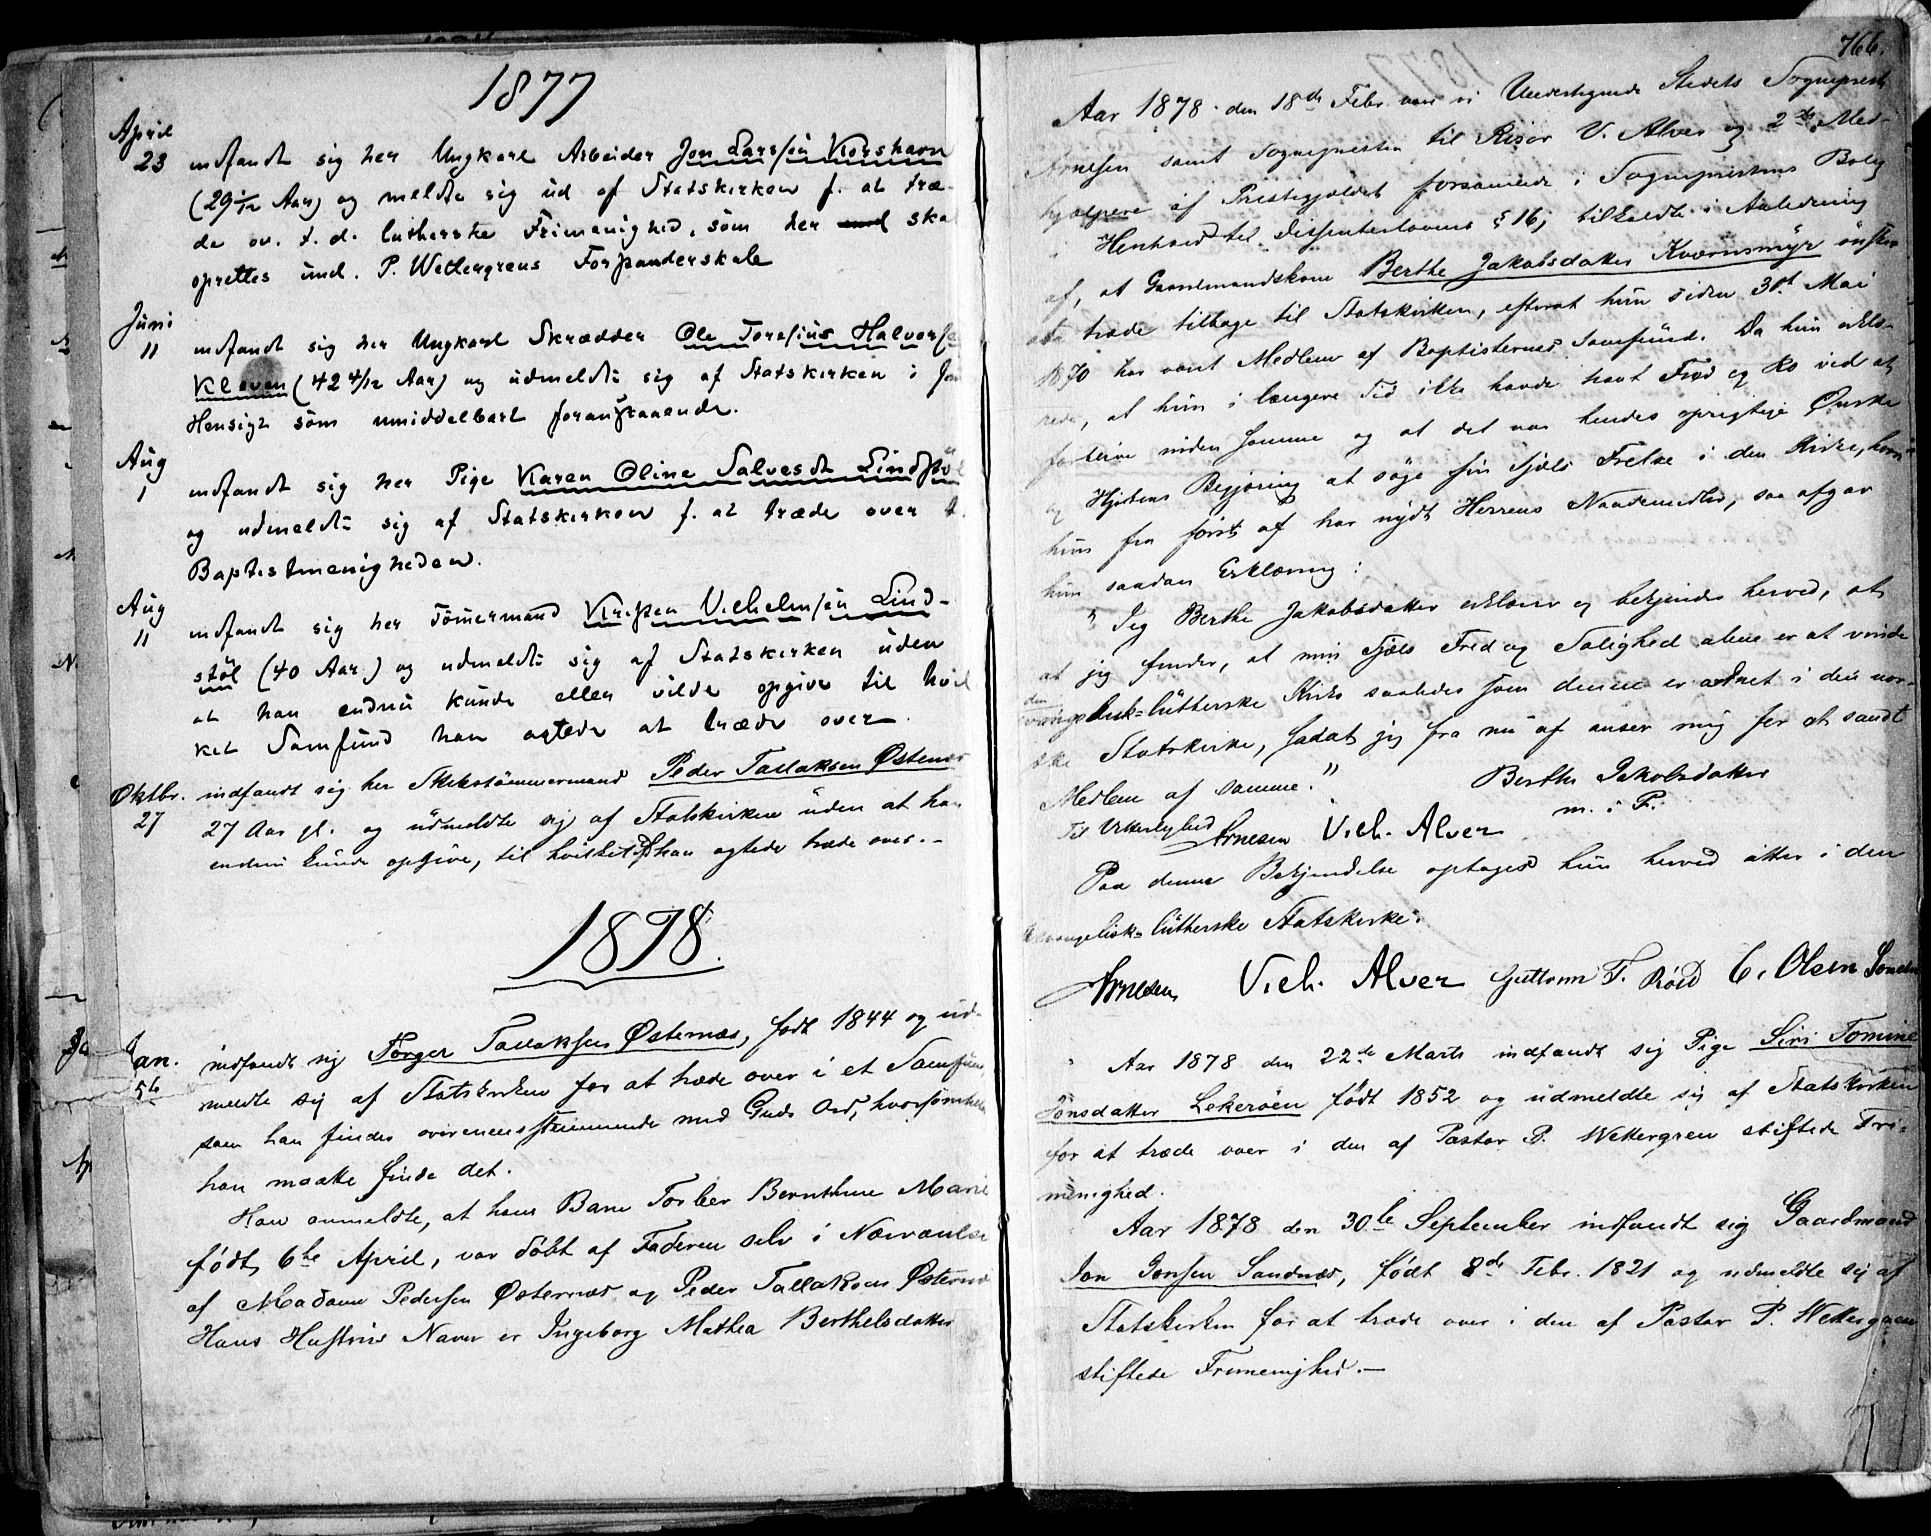 1877
April
23 indfandt sig her Ungkarl Arbeider Jon Larssen Korshavn
(29 1/12 Aar) og meldte sig ud af Statskirken f. at træ-
de ov. t. d. lutherske Frimenighed, som her skal
oprettes und. P. Wettergrens Forstanderskab
Juni
11 indfandt sig her Ungkarl Skrædder Ole Halvorse
Kleven (42 4/12 Aar) og udmeldte sig af Statskirken i
Hensigt som umiddelbart foranstaaende.
Aug
1 indfandt sig her Pige Karen Oline Salvesdt Lindstøl
og udmeldte sig af Statskirken f. at træde over t.
Baptistmenigheden.
Aug
11 indfandt sig her Tømermand Vilhelmsen Lind-
støl (40 Aar) og udmeldte sig af Statskirken uden
at han endnu kunde eller vilde opgive til hvil
ket Samfund han agtede at træde over.
Oktbr. indfandt sig her Skibstømmermand Peder Tallaksen Østenæs
27 27 Aar gl. og udmeldte sig af Statskirken uden at han
endnu kunde opgive, til hvilket han agtede træde over.-
1878.
Jan. indfandt sig Torger Tallaksen Østernæs, født 1844 og ud-
5te meldte sig af Statskirken for at træde over i et Samfund,
som han finder overensstemmende med Guds Ord, hvorsomhelst
han maatte finde det.
Han anmeldte, at hans Barn Torber Bernthine Marie
født 6te April, var døbt af Faderen selv i Nærværelse
af Madame Pedersen Østernæs og Peder Tallaksen Østernæs
Hans Hustrus Navn er Ingeborg Mathea Berthelsdatter
766.
Aar 1878 den 18de Febr. vare vi Undertegnede Stedets Sogneprest
Arnesen samt Sognepresten til Risør V. Alver og 2de Med-
hjælpere af Prestegjeldet forsamlede i Sogneprestens Bolig
i Henhold til Dissenterlovens § 16, tilkaldte i Anledning
af, at Gaardmandskone Berthe Jakobsdatter Kværnsmyr ønsker
at træde tilbage til Statskirken, efterat hun siden 30t Mai
1870 har været Medlem af Baptisternes Samfund. Da hun erklæ-
rede, at hun i længere Tid ikke havde havt Fred og Ro ved at
forblive inden samme og at det var hendes oprigtige Ønske
og Hjertens Begjæring at søge sin Sjæls Frelse i den Kirke, hvori
hun fra først af har nydt Herrens Naademidler, saa afgav
hun saadan Erklæring:
"Jeg Berthe Jakobsdatter erklærer og bekjender herved, at
at jeg finder, at min Sjæls Fred og Salighed alene er at vinde
den
evangelisk-lutherske Kirke saaledes som denne er ordnet i den nor-
ske Statskirke, sadat jeg fra nu af anser mig for et sandt
Medlem af samme."
Berthe Jakobsdatter
m. i P.
Til Vitterlighed
Arnesen Vilh. Alver
Paa denne Bekjendelse optoges hun herved atter i den
evangelisk-lutherske Statskirke.
Arnesen Vilh. Alver Guttorm T. Røed C. Olsen
Aar 1878 den 22de Marts indfandt sig Pige Siri Tomine
Jonsdatter Lekerøen født 1852 og udmeldte sig af Statskirken
for at træde over i den af Pastor P. Wettergren stiftede Fri-
menighed.
Aar 1878 den 30te September indfandt sig Gaardmand
Jon Jonsen Sandnæs, født 8de Febr. 1821 og udmeldte sig af
Statskirken for at træde over i den af Pastor P. Wettergren
stiftede Frimenighed.-